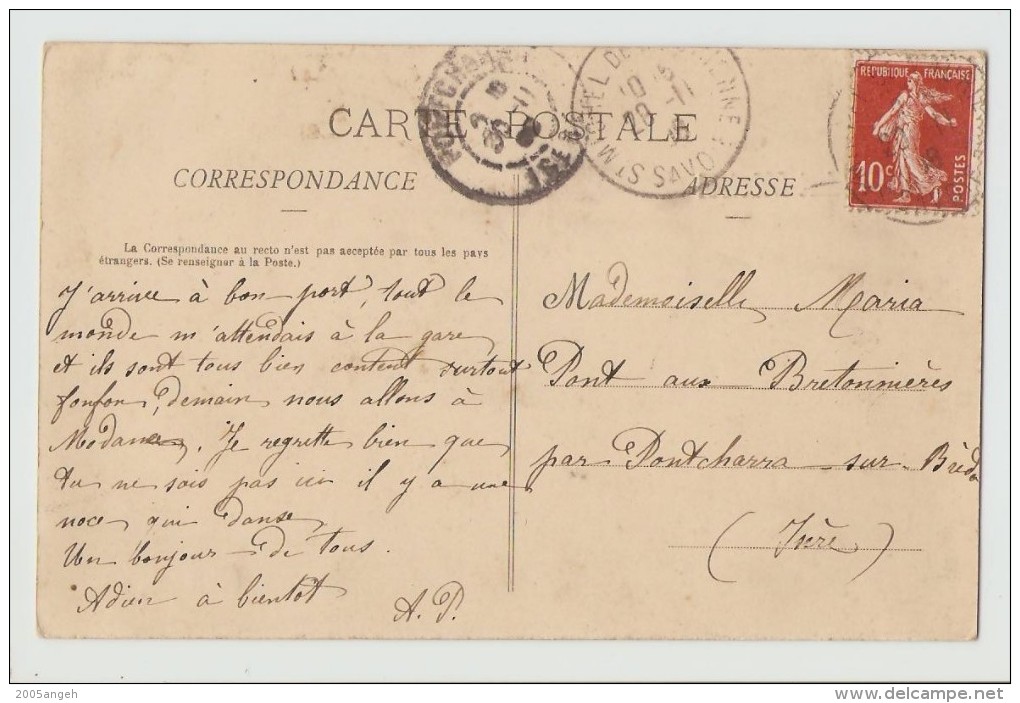 CARTE POSTALE
CORRESPONDANCE
ADRESSE
REPUBLIQUE FRANÇAISE
10 c
POSTES
ST MICHEL DE
SAVOIE
La Correspondance au recto n'est pas acceptée par tous les pays
étrangers. (Se renseigner à la Poste.)
J'arrive à bon port, tout le
monde m'attendais à la gare
et ils sont tous bien content surtout
fonfon, demain nous allons à
Modane. Je regrette bien que
tu ne sois pas ici il y a une
noce qui danse
Un bonjour de tous.
Adieu à bientot
A. P.
Mademoiselle Maria
Pont aux Bretonnières
par Pontcharra sur Bréda
(Isère)
2005angeh
www.delcampe.net